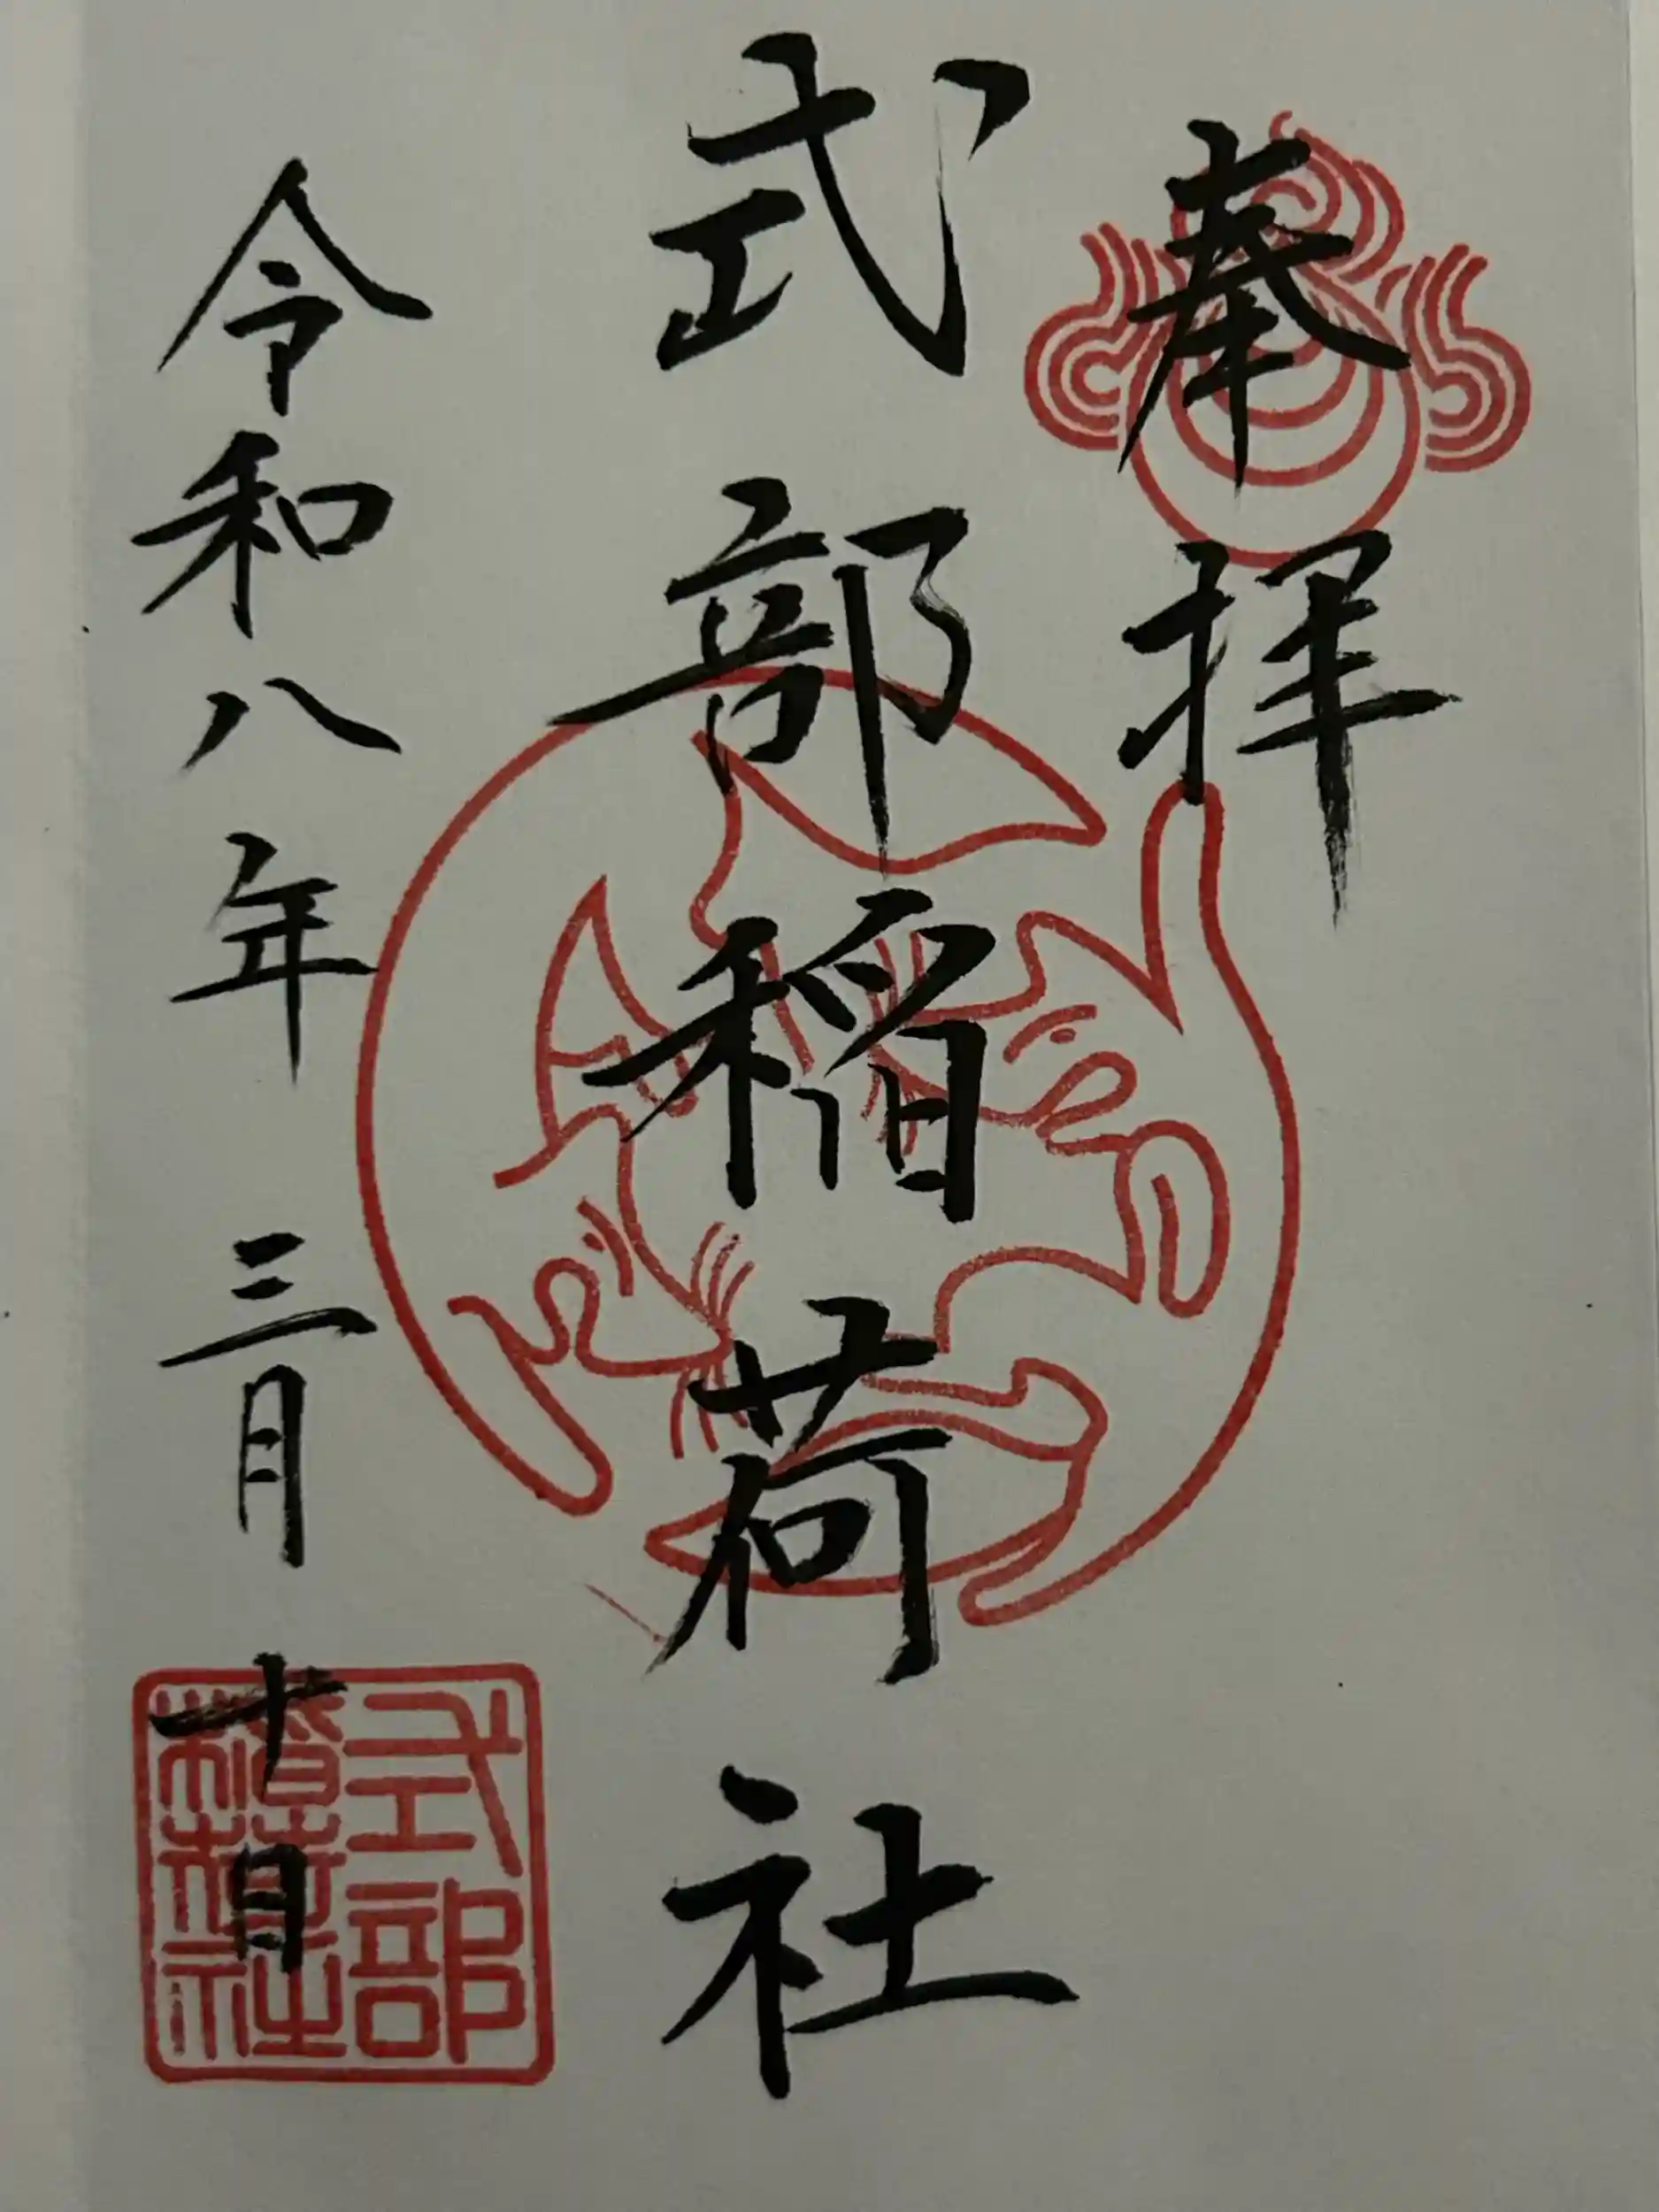 奉拝
式部稲荷社
令和八年三月十日
式部
稲荷社